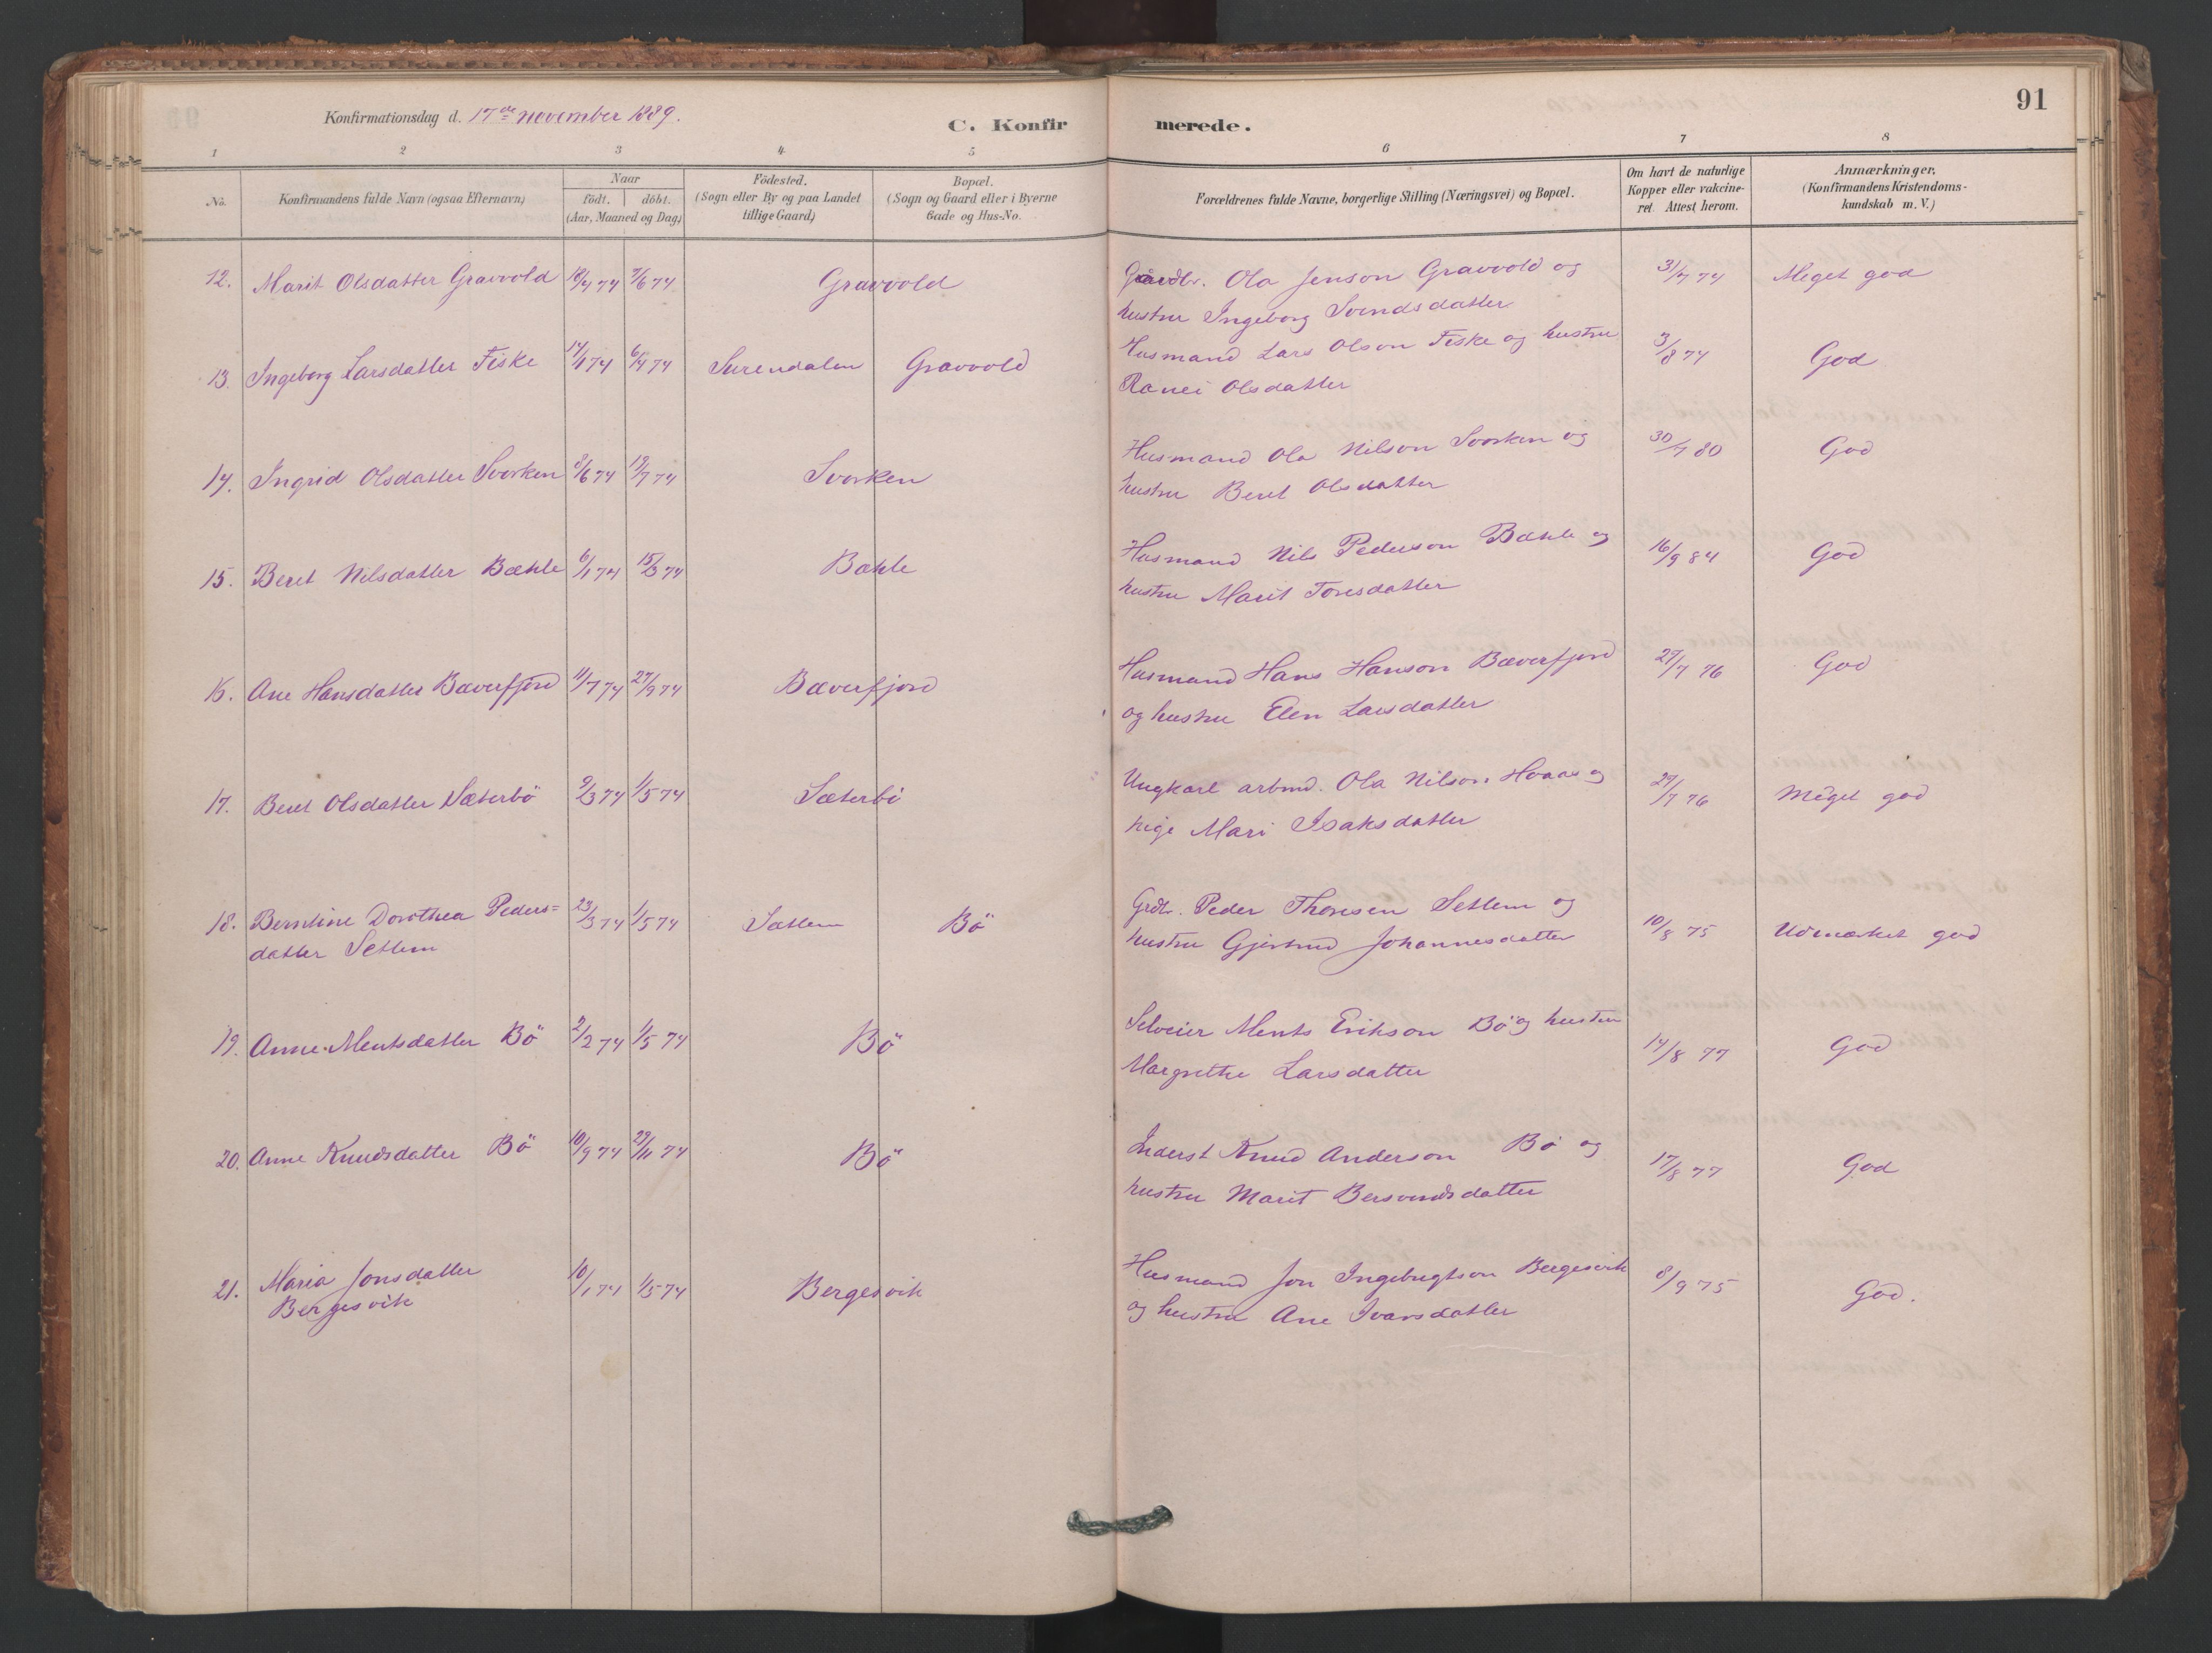 Konfirmationsdag d. 17de november 1889.
C. Konfirmerede.
91
1 2 3 4 5 6 7 8
No.
Konfirmandens fulde Navn (ogsaa Efternavn)
Naar
födt. döbt.
(Aar, Maaned og Dag)
Födested.
(Sogn eller By og paa Landet
tillige Gaard)
Bopæl.
(Sogn og Gaard eller i Byerne
Gade og Hus-No.
Forældrenes fulde Navne, borgerlige Stilling (Næringsvei) og Bopæl.
Om havt de naturlige
Kopper eller vakcine-
ret. Attest herom.
Anmærkninger.
(Konfirmandens Kristendoms-
kundskab m. V.)
12. Marit Olsdatter Gravvold 18/4 74 7/6 74 Gravvold Gaardbr. Ola Jenson Gravvold og 31/7 74 Meget god
hustru Ingeborg Svendsdatter
13. Ingeborg Larsdatter Fiske 14/1 74 6/4 74 Surendalen Gravvold Husmand Lars Olson Fiske og hustru 3/8 74 God
Ranei Olsdatter
14. Ingrid Olsdatter Svorken 8/6 74 19/7 74 Svorken Husmand Ola Nilson Svorken og 30/7 80 God
hustru Beret Olsdatter
15. Beret Nilsdatter Bæhle 6/1 74 15/3 74 Bæhle Husmand Nils Pederson Bæhle og 16/9 84 God
hustru Marit Toresdatter
16. Ane Hansdatter Bæverfjord 11/7 74 27/9 74 Bæverfjord Husmand Hans Hanson Bæverfjord 27/7 76 God
og hustru Elen Larsdatter
17. Beret Olsdatter Sæterbö 9/3 74 1/5 74 Sæterbö Ungkarl arbmd. Ola Nilson Hvaas og 27/7 76 Meget god
pige Mari Isaksdatter
18. Berntine Dorothea Peders=
datter Settem 23/3 74 1/5 74 Settem Bö Grdbr. Peder Thoresen Settem og 10/8 75 Udmærket god
hustru Gjertrud Johannesdatter
19. Anne Mentsdatter Bö 2/2 74 1/5 74 Bö Selveier Ments Erikson Bö og hustru 14/8 77 God
Margrethe Larsdatter
20. Anne Knudsdatter Bö 10/9 74 29/11 74 Bö Inderst Knud Anderson Bö og 17/8 77 God
hustru Marit Bersvendsdatter
21. Maria Jonsdatter
Bergesvik 10/1 74 1/5 74 Bergesvik Husmand Jon Ingebrigtson Bergesvik 8/9 75 God.
og hustru Ane Ivarsdatter